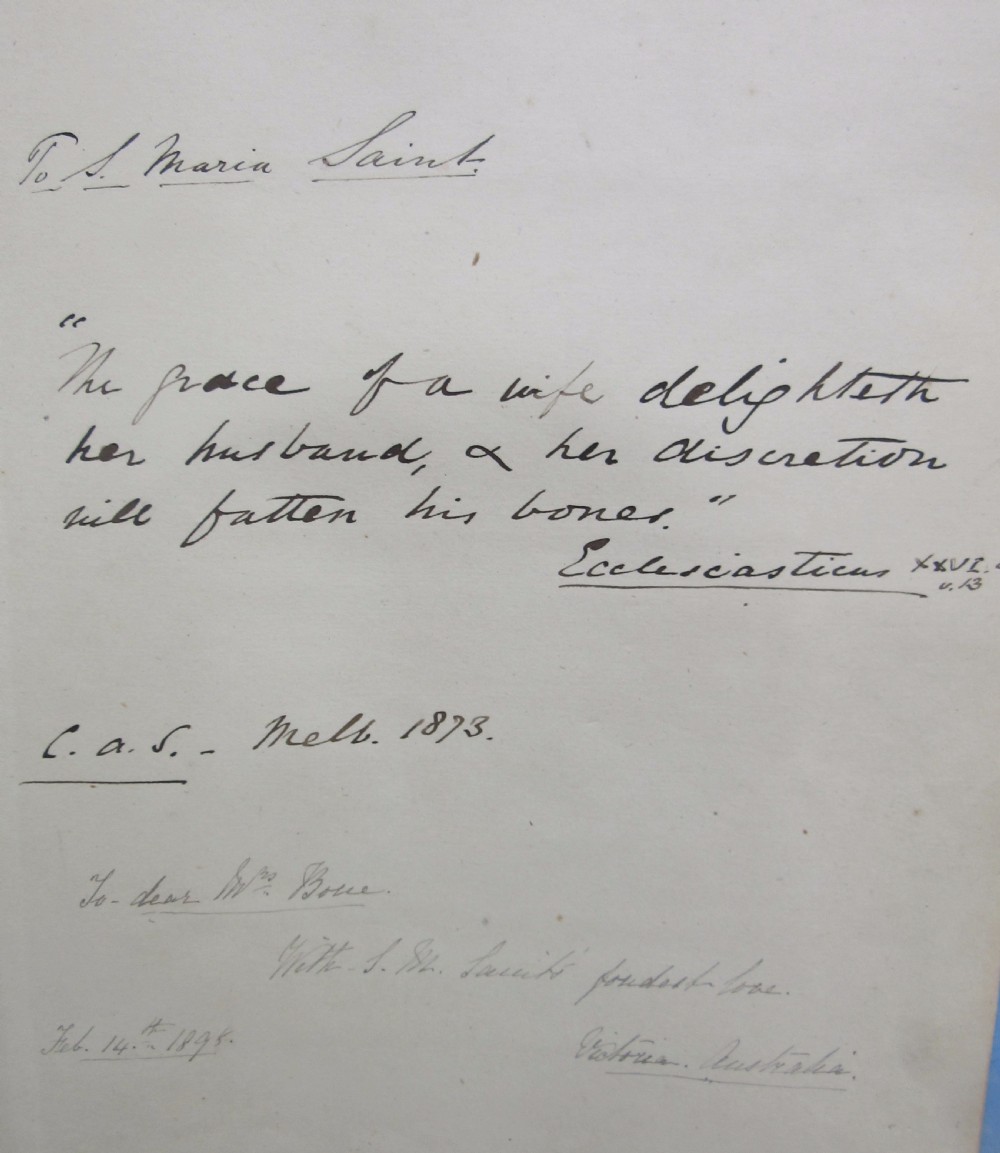 To S. Maria Saint.
"
The grace of a wife delighteth
her husband, & her discretion
will fatten his bones."
Ecclesiasticus XXVI.
v. 13
C. A. S. - Melb. 1873.
To dear Mrs. Bone.
With S. M. Saint's fondest love.
Feb. 14th 1898.
Victoria. Australia.